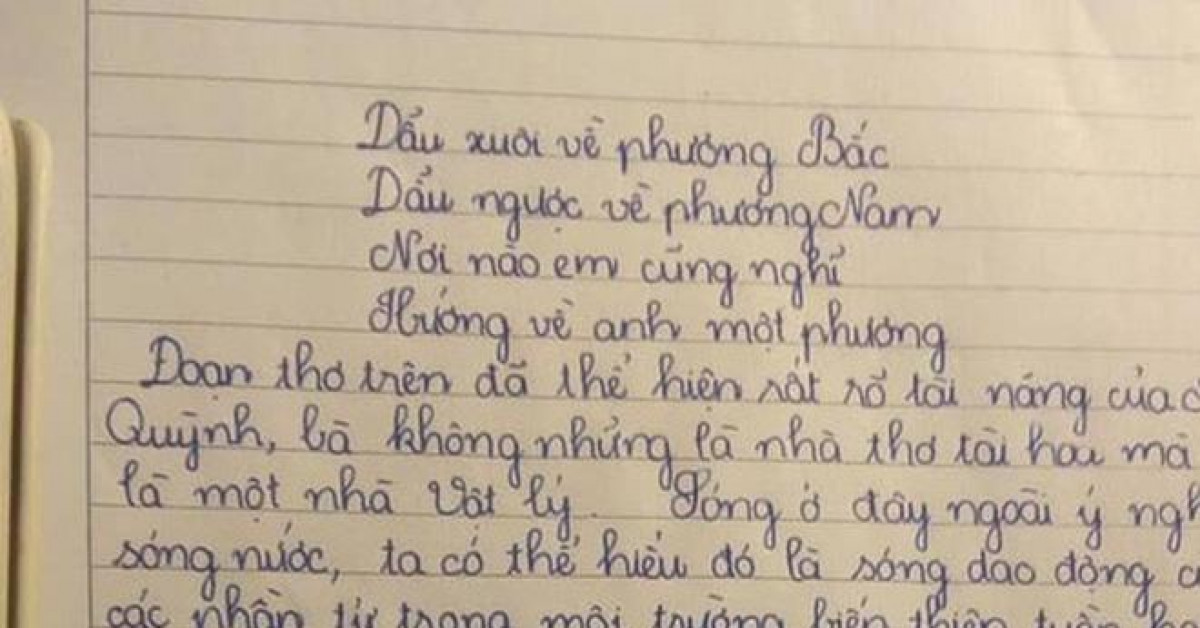 Dẩu xuôi về phương Bắc
Dẩu ngược về phương Nam
Nơi nào em cũng nghĩ
Hướng về anh một phương
Đoạn thơ trên đã thể hiện rất rõ tài năng của
Quỳnh, bà không những là nhà thơ tài hoa mà
là một nhà Vật lý. Sóng ở đây ngoài ý
sóng nước, ta có thể hiểu đó là sóng dao động
các phần tử trong môi trường biến thiên tuần